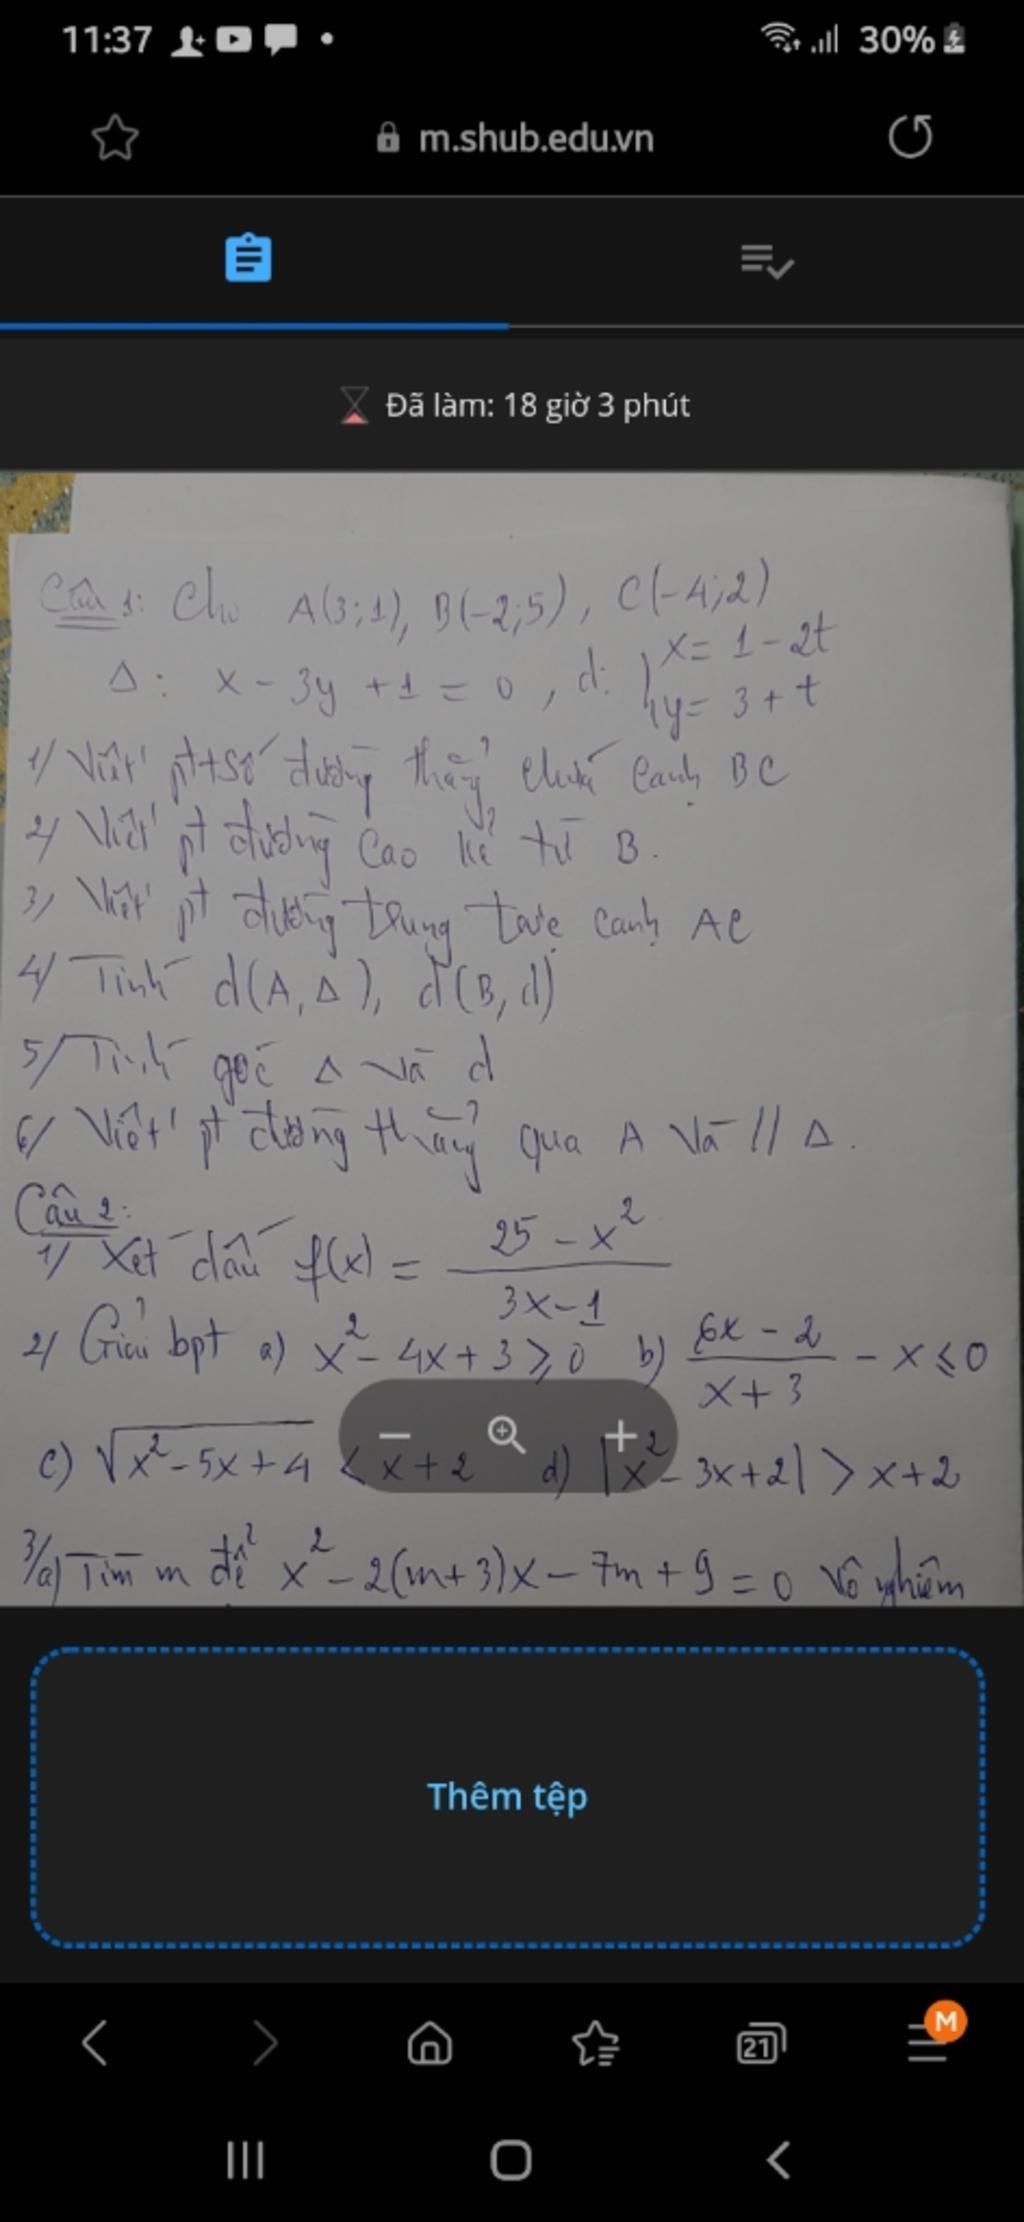 11:37
30%
m.shub.edu.vn
Đã làm: 18 giờ 3 phút
Câu 1: Cho A(3;1), B(-2;5), C(-4;2)
Δ: x - 3y + 1 = 0, d: { x = 1 - 2t
y = 3 + t
1/ Viết pt+số đường thẳng chứa cạnh BC
2/ Viết pt đường cao kẻ từ B.
3/ Viết pt đường trung trực cạnh AC
4/ Tính d(A, Δ), d(B, d)
5/ Tính góc Δ và d
6/ Viết pt đường thẳng qua A và // Δ.
Câu 2:
1/ Xét dấu f(x) = (25 - x²)/(3x - 1)
2/ Giải bpt a) x² - 4x + 3 ⩾ 0 b) (6x - 2)/(x + 3) - x ⩽ 0
c) √(x² - 5x + 4) < x + 2 d) |x² - 3x + 2| > x + 2
3/a) Tìm m để x² - 2(m+3)x - 7m + 9 = 0 vô nghiệm
Thêm tệp
21
M